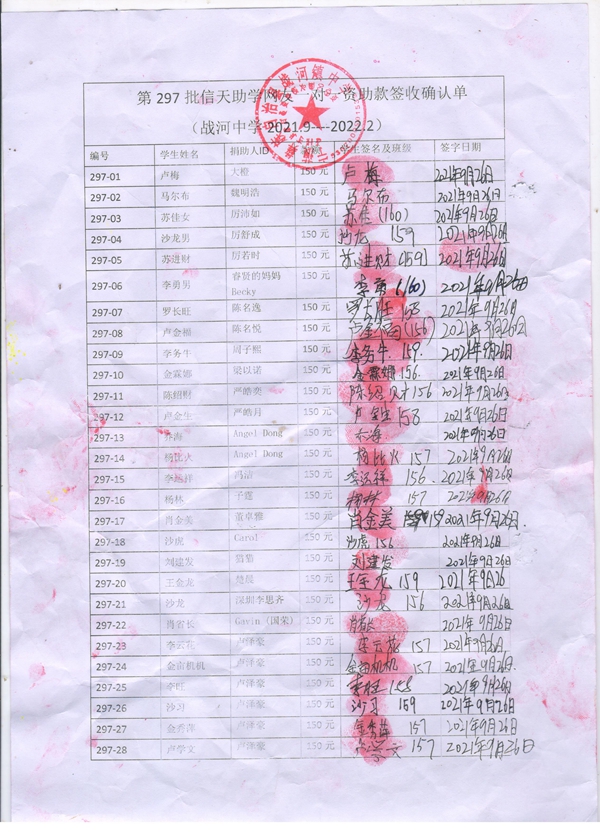 第 297 批信天助学网友一对一资助款签收确认单
（战河中学 2021.9---2022.2）
编号 学生姓名 捐助人ID 金额 学生签名及班级 签字日期
297-01 卢梅 大橙 150 元 卢梅 2021年9月26日
297-02 马尔布 魏明浩 150 元 马尔布 2021年9月26日
297-03 苏佳女 厉沛如 150 元 苏佳 (160) 2021年9月26日
297-04 沙龙男 厉舒成 150 元 沙龙 159 2021年9月26日
297-05 苏进财 厉若时 150 元 苏进财 (159) 2021年9月26日
297-06 李勇男 睿贤的妈妈 Becky 150 元 李勇 (160) 2021年9月26日
297-07 罗长旺 陈名逸 150 元 罗长旺 158 2021年9月26日
297-08 卢金福 陈名悦 150 元 卢金福 (156) 2021年9月26日
297-09 李务牛 周子熙 150 元 李务牛 159 2021年9月26日
297-10 金霖娜 梁以诺 150 元 金霖娜 156 2021年9月26日
297-11 陈绍财 严皓奕 150 元 陈绍财 156 2021年9月26日
297-12 卢金生 严皓月 150 元 卢金生 158 2021年9月26日
297-13 Angel Dong 150 元 2021年9月26日
297-14 杨比火 Angel Dong 150 元 杨比火 157 2021年9月26日
297-15 冯洁 150 元 156 2021年9月26日
297-16 杨林 子霆 150 元 杨林 157 2021年9月26日
297-17 肖金美 董卓雅 150 元 肖金美 159 2021年9月26日
297-18 沙虎 Carol 150 元 沙虎 156 2021年9月26日
297-19 刘建发 150 元 刘建发 2021年9月26日
297-20 王金龙 150 元 王金龙 159 2021年9月26
297-21 沙龙 深圳李思齐 150 元 沙龙 156 2021年9月26日
297-22 肖省长 Gavin（国荣） 150 元 2021年9月26日
297-23 李云花 卢泽豪 150 元 李云花 157 2021年9月26日
297-24 金雷机机 卢泽豪 150 元 金雷机机 157 2021年9月26日
297-25 李旺 卢泽豪 150 元 李旺 158 2021年9月26日
297-26 沙习 卢泽豪 150 元 沙习 159 2021年9月26日
297-27 卢泽豪 150 元 157 2021年9月26日
297-28 卢学文 卢泽豪 150 元 卢学文 157 2021年9月26日